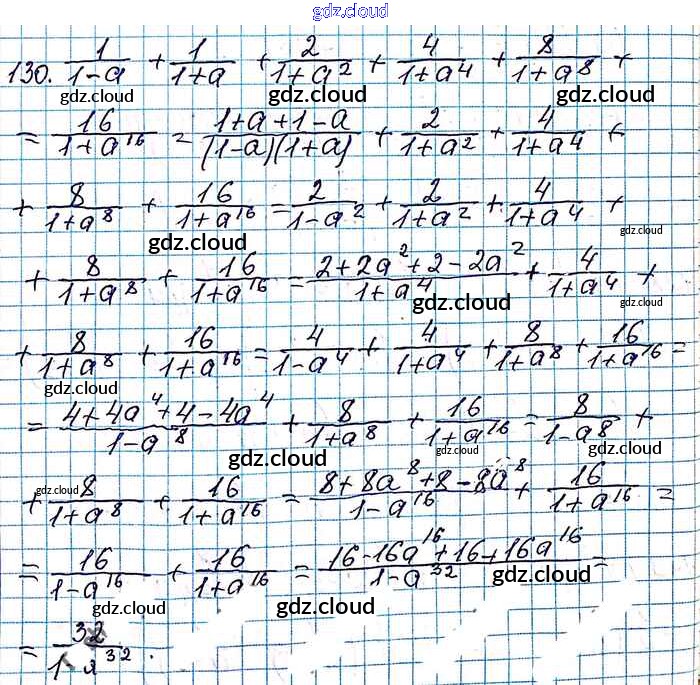 gdz.cloud
130. 1/(1-a) + 1/(1+a) + 2/(1+a²) + 4/(1+a⁴) + 8/(1+a⁸) +
gdz.cloud gdz.cloud gdz.cloud
= 16/(1+a¹⁶) = (1+a+1-a)/((1-a)(1+a)) + 2/(1+a²) + 4/(1+a⁴) +
gdz.cloud gdz.cloud
+ 8/(1+a⁸) + 16/(1+a¹⁶) = 2/(1-a²) + 2/(1+a²) + 4/(1+a⁴) +
gdz.cloud gdz.cloud
+ 8/(1+a⁸) + 16/(1+a¹⁶) = (2+2a²+2-2a²)/(1+a⁴) + 4/(1+a⁴) +
gdz.cloud gdz.cloud gdz.cloud
+ 8/(1+a⁸) + 16/(1+a¹⁶) = 4/(1-a⁴) + 4/(1+a⁴) + 8/(1+a⁸) + 16/(1+a¹⁶) =
gdz.cloud gdz.cloud
= (4+4a⁴+4-4a⁴)/(1-a⁸) + 8/(1+a⁸) + 16/(1+a¹⁶) = 8/(1-a⁸) +
gdz.cloud gdz.cloud gdz.cloud
+ 8/(1+a⁸) + 16/(1+a¹⁶) = (8+8a⁸+8-8a⁸)/(1-a¹⁶) + 16/(1+a¹⁶) =
gdz.cloud gdz.cloud gdz.cloud
= 16/(1-a¹⁶) + 16/(1+a¹⁶) = (16-16a¹⁶+16+16a¹⁶)/(1-a³²) =
gdz.cloud gdz.cloud gdz.cloud
= 32/(1-a³²).